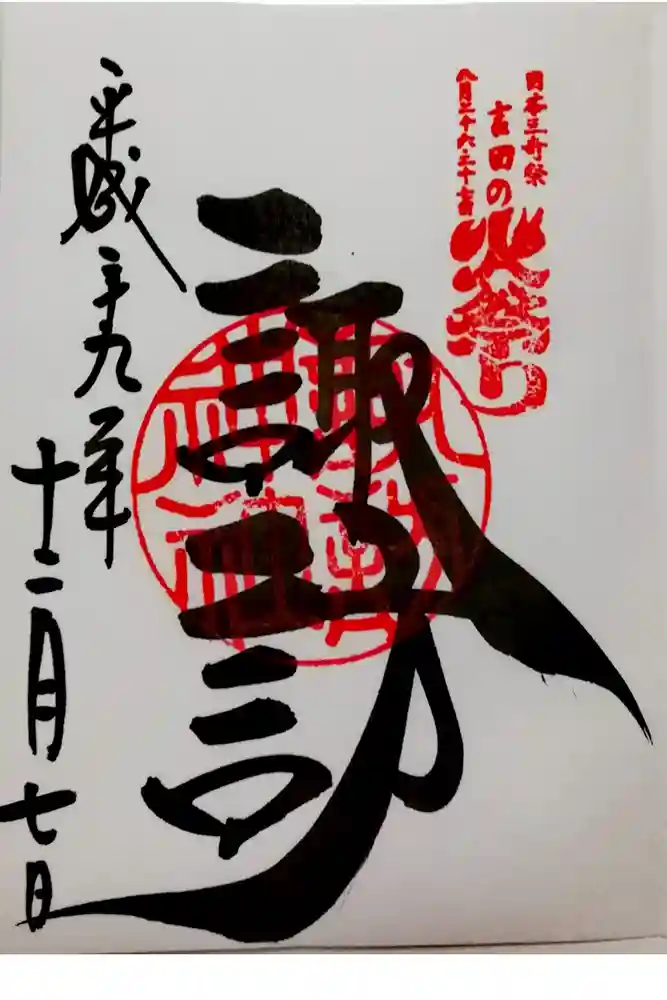 日本三奇祭
吉田の火祭り
八月二十六・二十七日
諏訪
平成二十九年
十二月七日